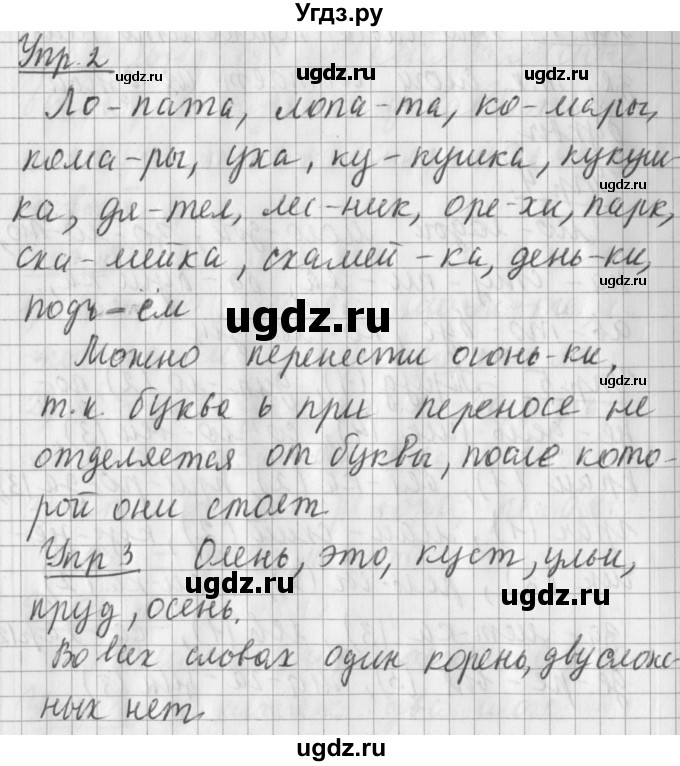 Угдз.ру
Упр. 2
ugdz.ru ugdz.ru ugdz.ru
Ло-пата, лопа-та, ко-мары,
ugdz.ru
кома-ры, уха, ку-кушка, кукуш-
ugdz.ru
ка, дя-тел, лес-ник, оре-хи, парк,
ска-мейка, скамей-ка, день-ки,
подъ-ём
ugdz.ru
Можно перенести огонь-ки,
ugdz.ru
т.к. буква ь при переносе не
отделяется от буквы, после кото-
рой они стоят.
Упр 3 Олень, это, куст, ульи,
ugdz.ru ugdz.ru
пруд, осень.
Во всех словах один корень, двуслож-
ugdz.ru
ных нет.
ugdz.ru
ugdz.ru